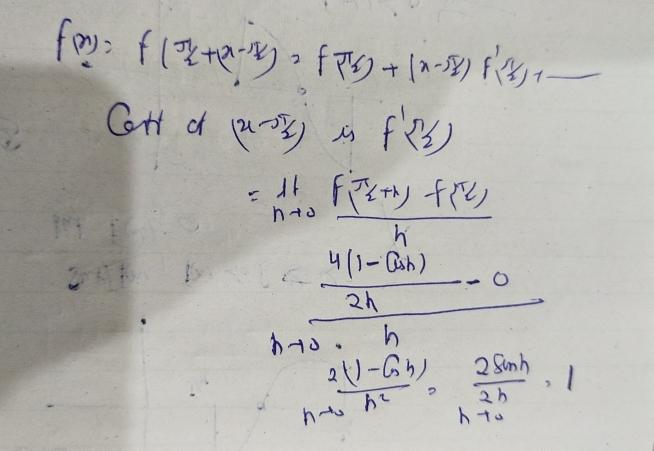 f(x) = f(π/2 + (x-π/2)) = f(π/2) + (x-π/2) f'(π/2) + —
Coeff of (x-π/2) is f'(π/2)
= lt h→0 (f(π/2+h) - f(π/2)) / h
h→0 (4(1-Cosh)/2h - 0) / h
h→0 2(1-Cosh)/h² = h→0 2Sinh/2h = 1